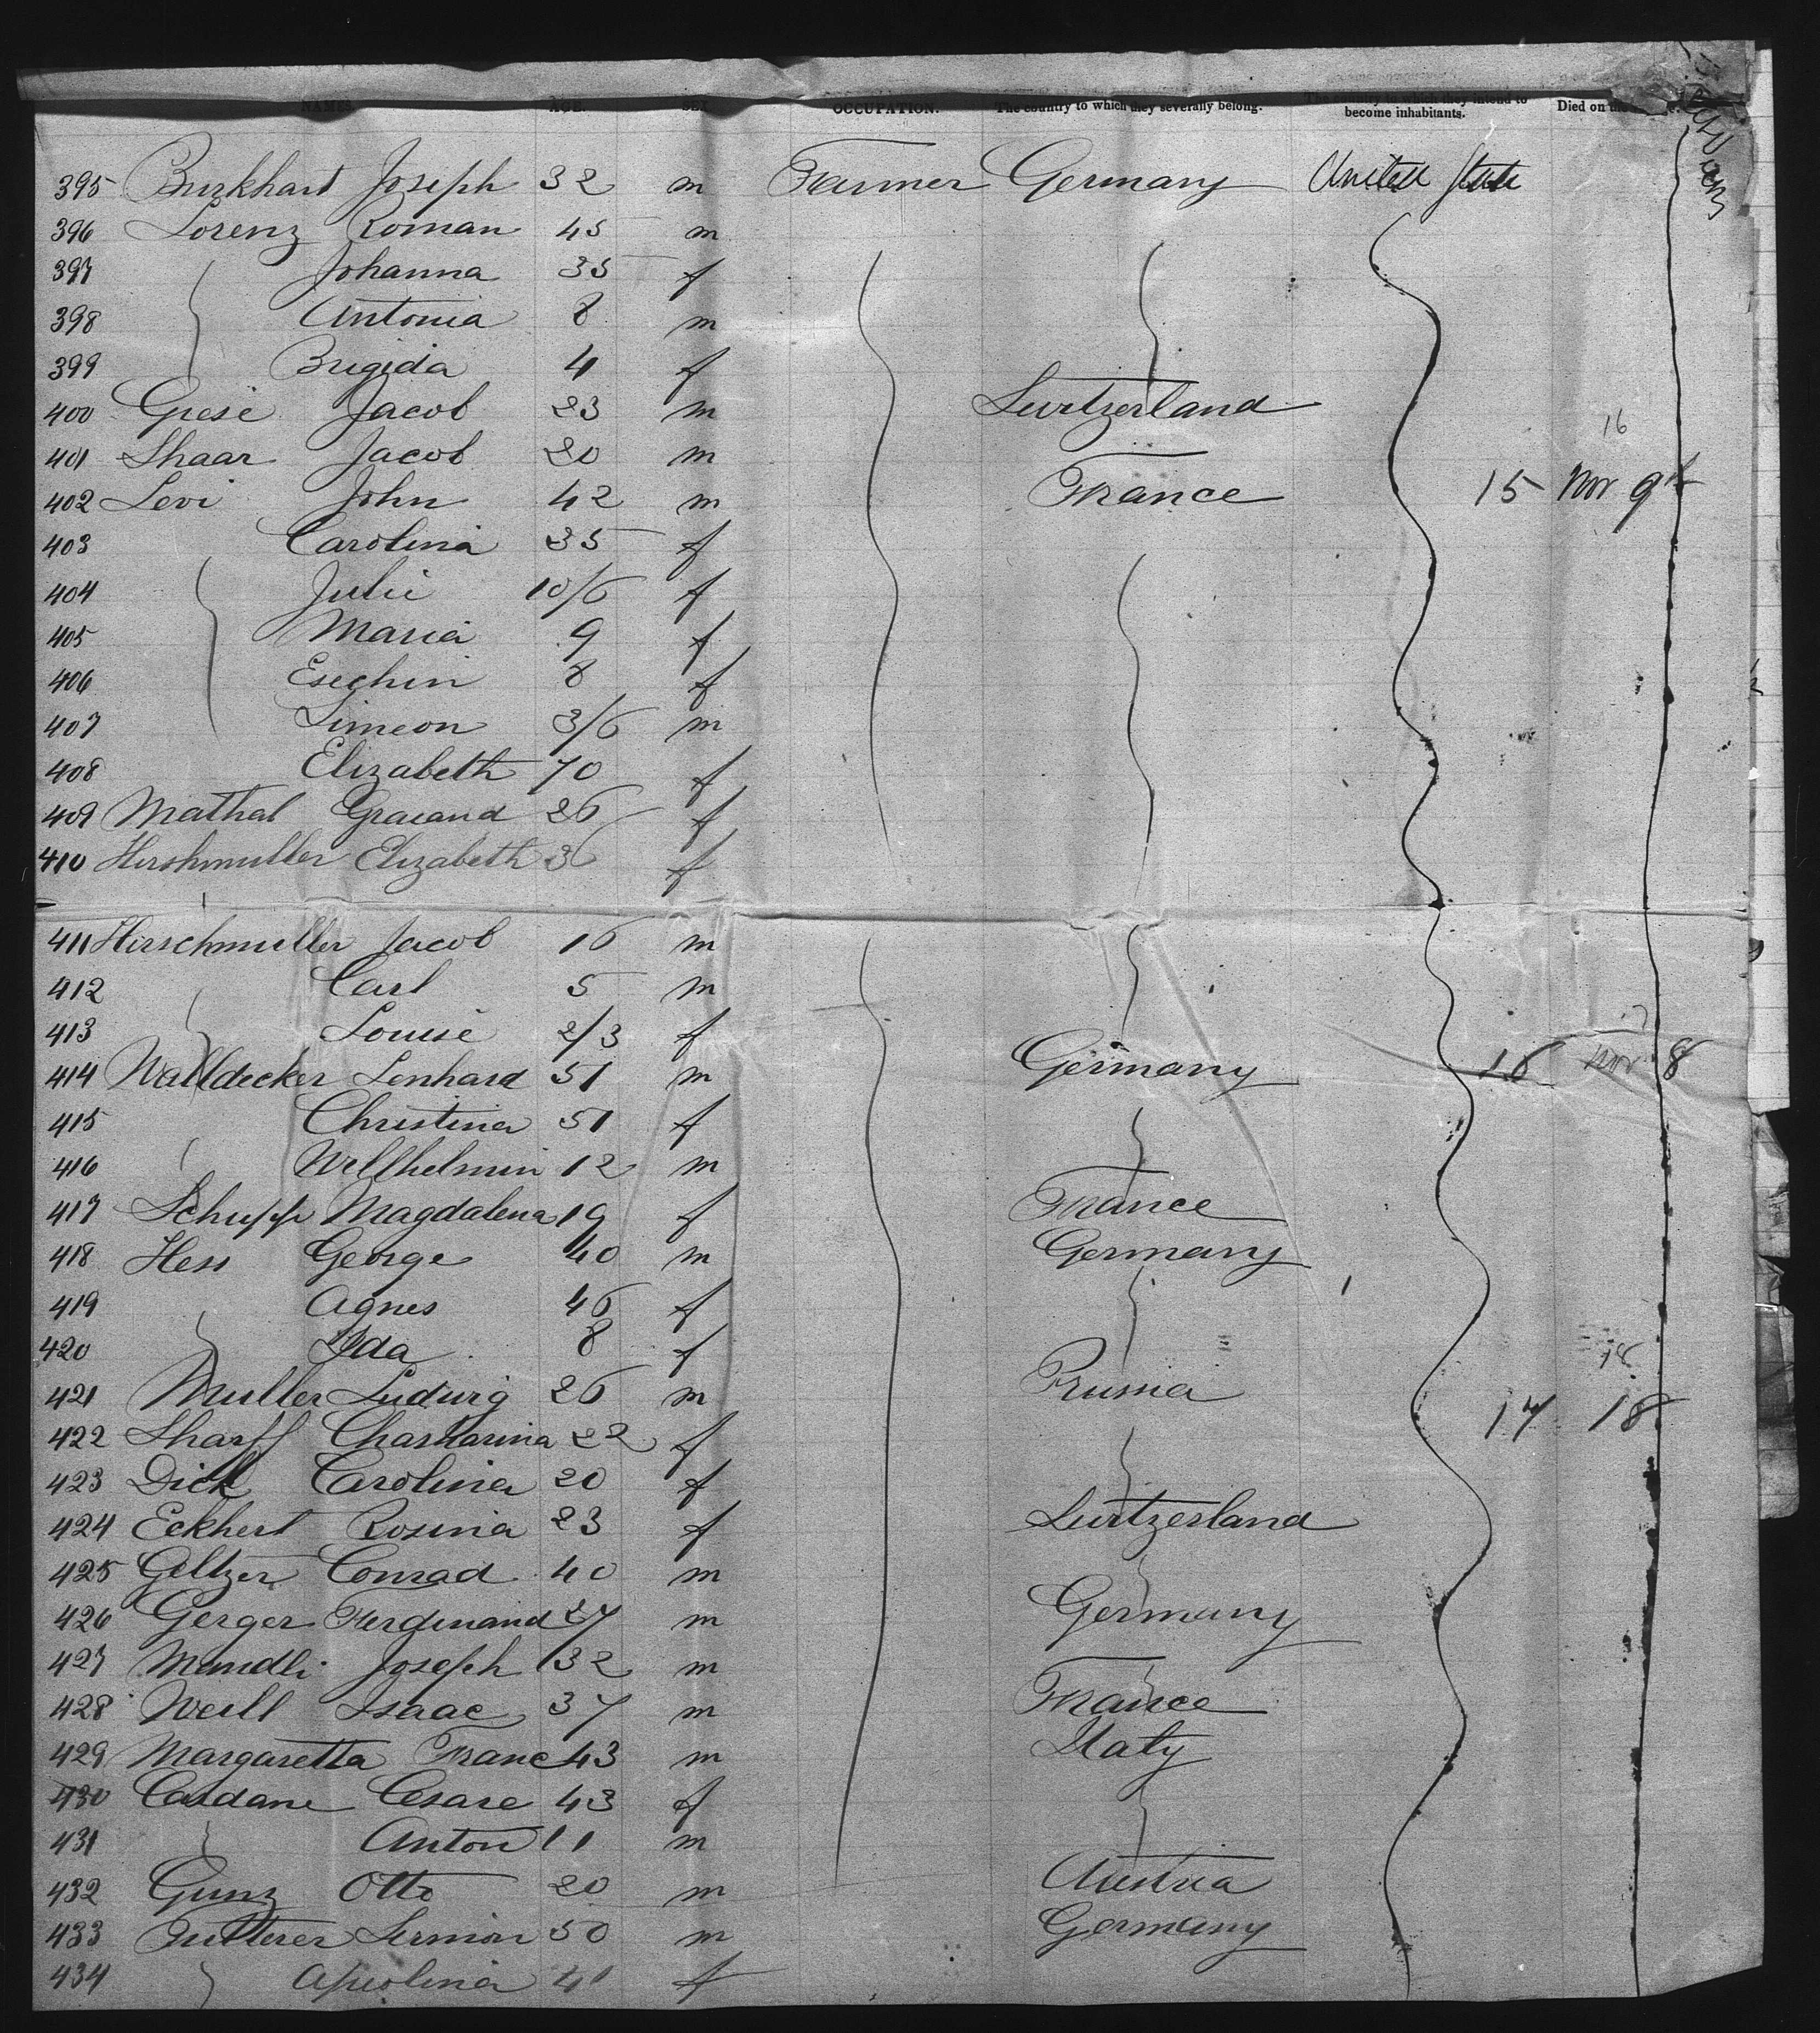 NAMES. AGE. SEX OCCUPATION. The country to which they severally belong. intend to become inhabitants. Died on the
395 Burkhart Joseph 32 m Farmer Germany United State
396 Lorenz Roman 45 m
397 Johanna 35 f
398 Antonia 8 m
399 Brigida 4 f
400 Giesi Jacob 23 m Switzerland
16
401 Shaar Jacob 20 m
402 Levi John 42 m France 15 Nov 9th
403 Carolina 35 f
404 Julie 10/6 f
405 Maria 9 f
406 Esechin 8 f
407 Simeon 3/6 m
408 Elizabeth 70 f
409 Mathal 26 f
410 Hirshmuller Elizabeth 36 f
411 Hirschmuller Jacob 16 m
412 Carl 5 m
413 Louise 2/3 f
414 Walldecker Lenhard 51 m Germany 16 Nov 8
415 Christina 51 f
416 Willhelmin 12 m
417 Schupp Magdalena 19 f France
418 Hess George 40 m Germany
419 Agnes 46 f
420 Ida 8 f
18
421 Muller Ludwig 26 m Prussia
17 18
422 Sharff 22 f
423 Dick Carolina 20 f
424 Eckhert Rosina 23 f Switzerland
425 Geltzer Conrad 40 m
426 Gerger Ferdinand 27 m Germany
427 Mandli Joseph 32 m
428 Weill Isaac 37 m France
429 Margaretta Franc 43 m Italy
430 Cardane Cesare 43 f
431 Anton 11 m
432 Gunz Otto 20 m Austria
433 Futterer 50 m Germany
434 Apolina 41 f